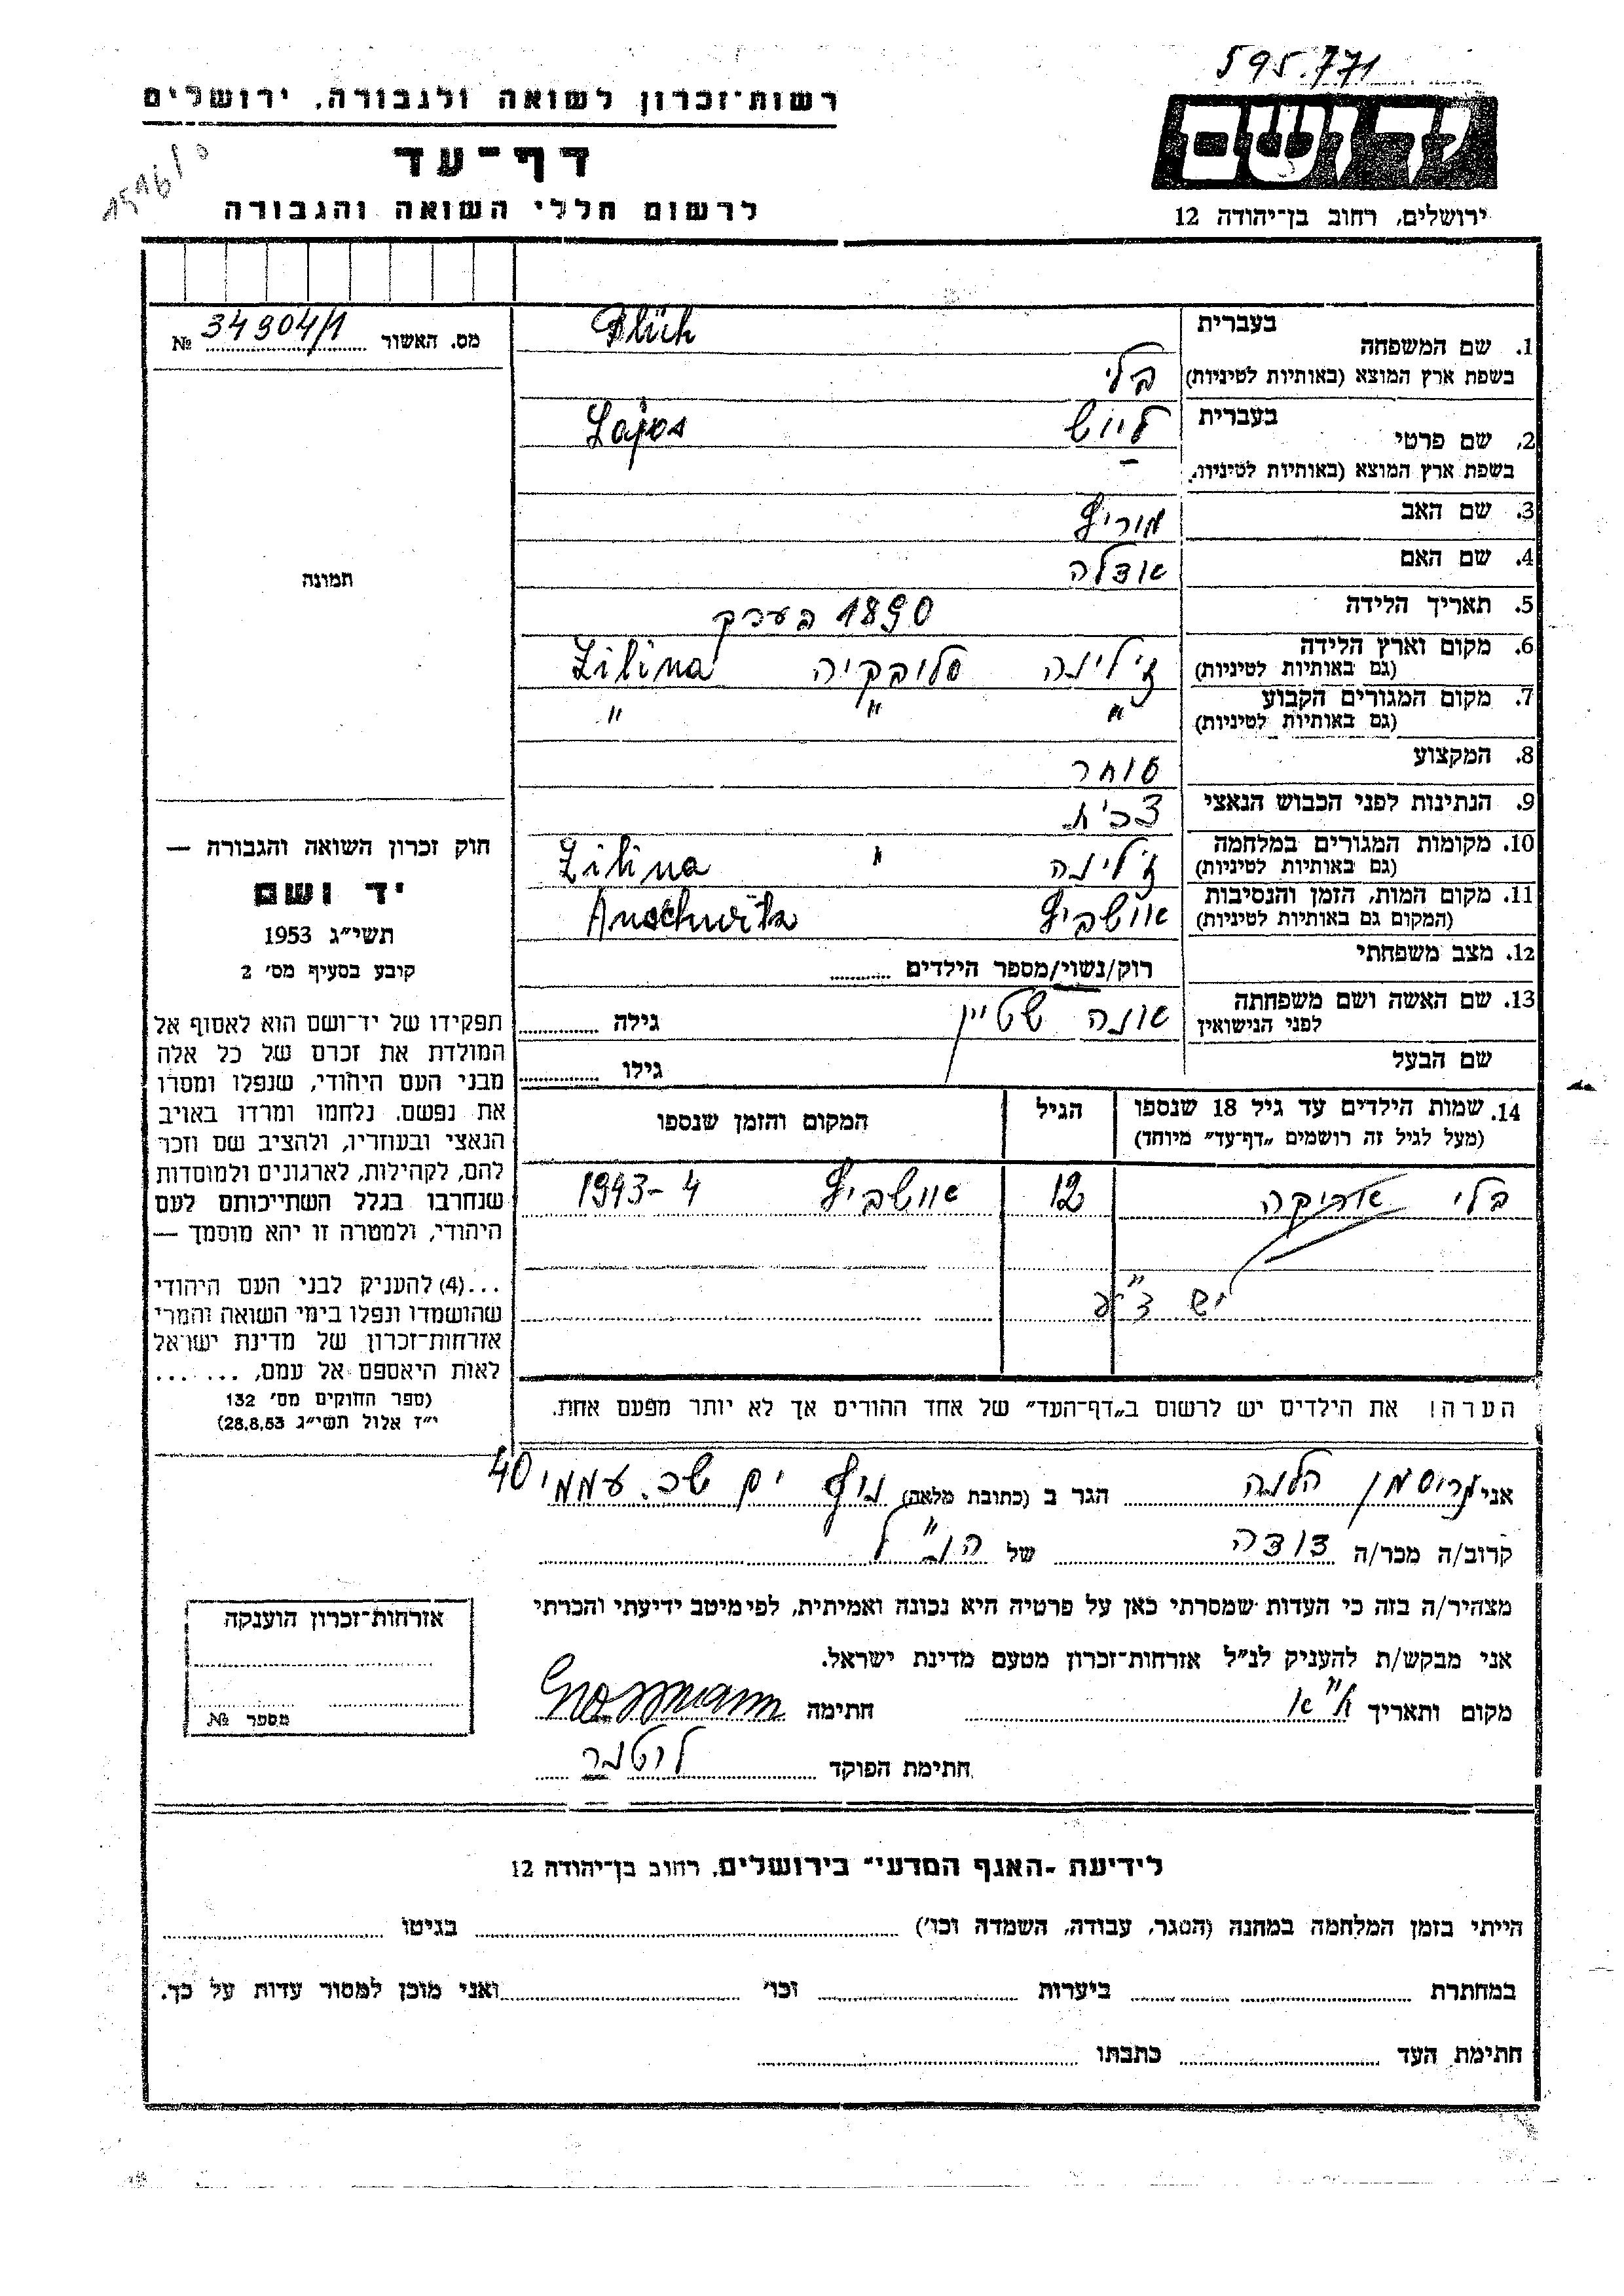 595.771
רשות־זכרון לשואה ולגבורה, ירושלים
דף־עד
לרשום חללי השואה והגבורה
ירושלים, רחוב בן־יהודה 12
מס. האשור 34904/1 №
בעברית
1. שם המשפחה Blüh
בשפת ארץ המוצא (באותיות לטיניות) בלי
בעברית
2. שם פרטי ליוש Lajos
בשפת ארץ המוצא (באותיות לטיניות)
3. שם האב מוריץ
4. שם האם אדלה
5. תאריך הלידה 1890 בערך
6. מקום וארץ הלידה ז'ילינה סלובקיה Zilina
(גם באותיות לטיניות)
7. מקום המגורים הקבוע " " "
(גם באותיות לטיניות)
8. המקצוע סוחר
9. הנתינות לפני הכבוש הנאצי צכית
10. מקומות המגורים במלחמה ז'לינה " Zilina
(גם באותיות לטיניות)
11. מקום המות, הזמן והנסיבות אוושביץ Auschwitz
(המקום גם באותיות לטיניות)
12. מצב משפחתי רוק/נשוי/מספר הילדים
13. שם האשה ושם משפחתה אונה שטיין גילה
לפני הנישואין
שם הבעל גילו
תמונה
חוק זכרון השואה והגבורה —
יד ושם
תשי״ג 1953
קובע בסעיף מס׳ 2
תפקידו של יד־ושם הוא לאסוף אל
המולדת את זכרם של כל אלה
מבני העם היהודי, שנפלו ומסרו
את נפשם, נלחמו ומרדו באויב
הנאצי ובעוזריו, ולהציב שם וזכר
להם, לקהילות, לארגונים ולמוסדות
שנחרבו בגלל השתייכותם לעם
היהודי, ולמטרה זו יהא מוסמך —
...(4) להעניק לבני העם היהודי
שהושמדו ונפלו בימי השואה והמרי
אזרחות־זכרון של מדינת ישראל
לאות היאספם אל עמם, ... ...
(ספר החוקים מס׳ 132
י״ז אלול תשי״ג 28.8.53)
14. שמות הילדים עד גיל 18 שנספו הגיל המקום והזמן שנספו
(מעל לגיל זה רושמים „דף־עד״ מיוחד)
בלי אריקה 12 אוושביץ 1943-4
יש ד"ע
הערה! את הילדים יש לרשום ב„דף־העד״ של אחד ההורים אך לא יותר מפעם אחת.
אני גרוסמן הלנה הגר ב (כתובת מלאה) נוף ים שכ. עממי 40
קרוב/ה מכר/ה דודה של הנ"ל
מצהיר/ה בזה כי העדות שמסרתי כאן על פרטיה היא נכונה ואמיתית, לפי מיטב ידיעתי והכרתי
אני מבקש/ת להעניק לנ״ל אזרחות־זכרון מטעם מדינת ישראל.
מקום ותאריך ת"א חתימה Grossmann
חתימת הפוקד
אזרחות־זכרון הוענקה
מספר №
לידיעת ״האגף המדעי״ בירושלים, רחוב בן־יהודה 12
הייתי בזמן המלחמה במחנה (הסגר, עבודה, השמדה וכו׳) בגיטו
במחתרת ביערות וכו׳ ואני מוכן למסור עדות על כך.
חתימת העד כתבתו